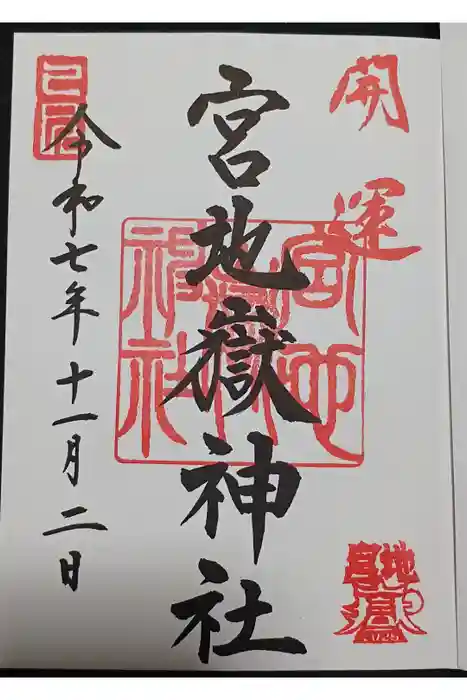 開運
宮地嶽神社
令和七年十一月二日
己
宮地嶽神社
宮地嶽
2025